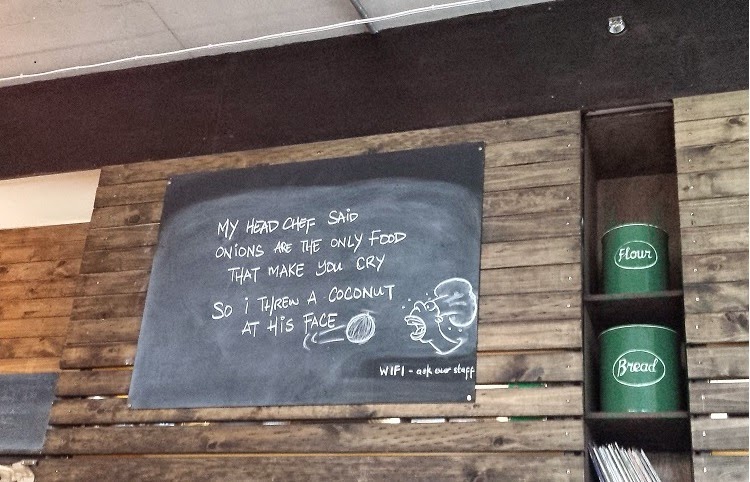 MY HEAD CHEF SAID
ONIONS ARE THE ONLY FOOD
THAT MAKE YOU CRY
SO I THREW A COCONUT
AT HIS FACE
WIFI - ask our staff
Flour
Bread